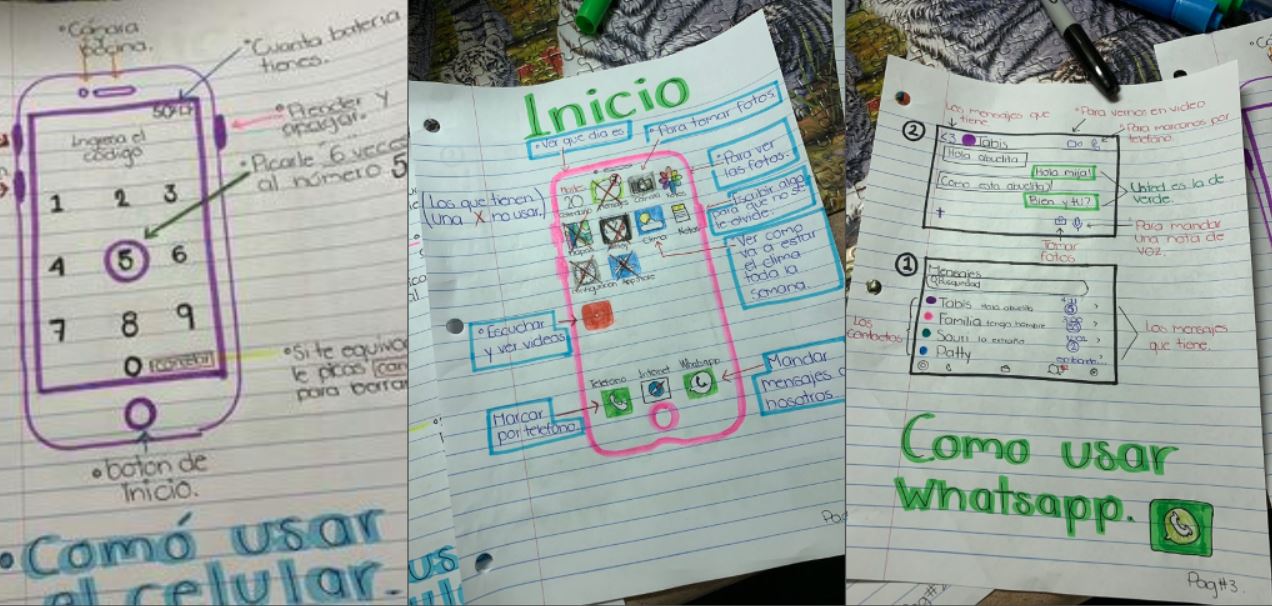 • Cámara
página.
• Cuanta bateria
tienes.
50%
Prender y
apagar.
Ingresa el
código
• Picarle 6 veces
al número 5
1 2 3
4 5 6
7 8 9
0 cancelar
• Si te equivoc
le picas can
para borrar
• boton de
Inicio.
• Comó usar
el celular.
Inicio
• Ver que dia es
• Para tomar fotos.
• Para ver
las fotos.
Los que tienen
una X no usar.
Escribir algo
para que no se
le olvide.
Martes
20
Calendario
Clima
Notas
• Ver como
va a estar
el clima
toda la
semana.
App store
• Escuchar
y ver videos.
Telefono Internet Whatsapp
Mandar
mensajes a
nosotros.
Marcar
por telefono.
Los mensajes que
tiene
• Para vernos en video
• Para marcarnos por
telefono.
2
<3 Tabis
Hola abuelita
Hola mija!
Como esta abuelita?
Bien y tu?
Usted es la de
verde.
+
Tomar
fotos
• Para mandar
una nota de
voz.
1
Mensajes
Busquedad
Tabis Hola abuelita
Familia tengo hambre
Sauri la extraño
Patty
Los
contactos
Los mensajes
que tiene.
Como usar
whatsapp.
Pag#3.